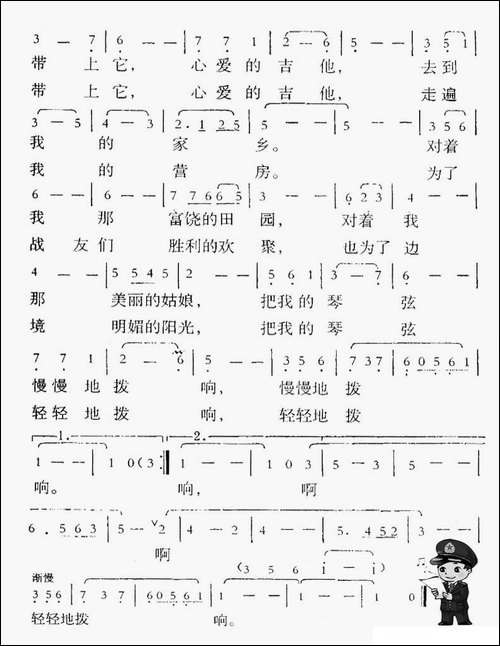 3 — 7 | 6 — — | 7 7 1 | 2 — 6 | 5 — — | 3 5 1 |
带 上 它, 心 爱 的 吉 他, 去 到
带 上 它, 心 爱 的 吉 他, 走 遍
3 — 5 | 4 — 3 | 2. 1 2 5 | 5 — — | 5 — — | 3 5 6 |
我 的 家 乡。 对 着
我 的 营 房。 为 了
6 — — | 6 — — | 7 7 6 6 5 | 3 — — | 6 2 3 | 4 — —
我 那 富饶的田 园, 对着 我
战 友 们 胜利的欢 聚, 也为了 边
4 — — | 5 5 4 5 | 2 — — | 5 6 1 | 3 — 7 | 6 — —
那 美丽的姑娘, 把我的 琴 弦
境 明媚的阳光, 把我的 琴 弦
7 7 1 | 2 — 6 | 5 — — | 3 5 6 | 7 3 7 | 6 0 5 6 1 |
慢慢 地 拨 响, 慢慢地 拨
轻轻 地 拨 响, 轻轻地 拨
1. 2.
1 — — | 1 0 (3 :‖ 1 — — | 1 0 3 | 5 — 3 | 5 — — |
响。 响, 啊
6 . 5 6 3 | 5 — ∨ 2 | 4 — 2 | 4 — — | 5. 4 5 2 | 3 — —
啊
(3 5 6 i — i)
渐慢
3 5 6 | 7 3 7 | 6 0 5 6 1 | 1 — — | 1 — — | 1 0 ‖
轻轻地拨 响。